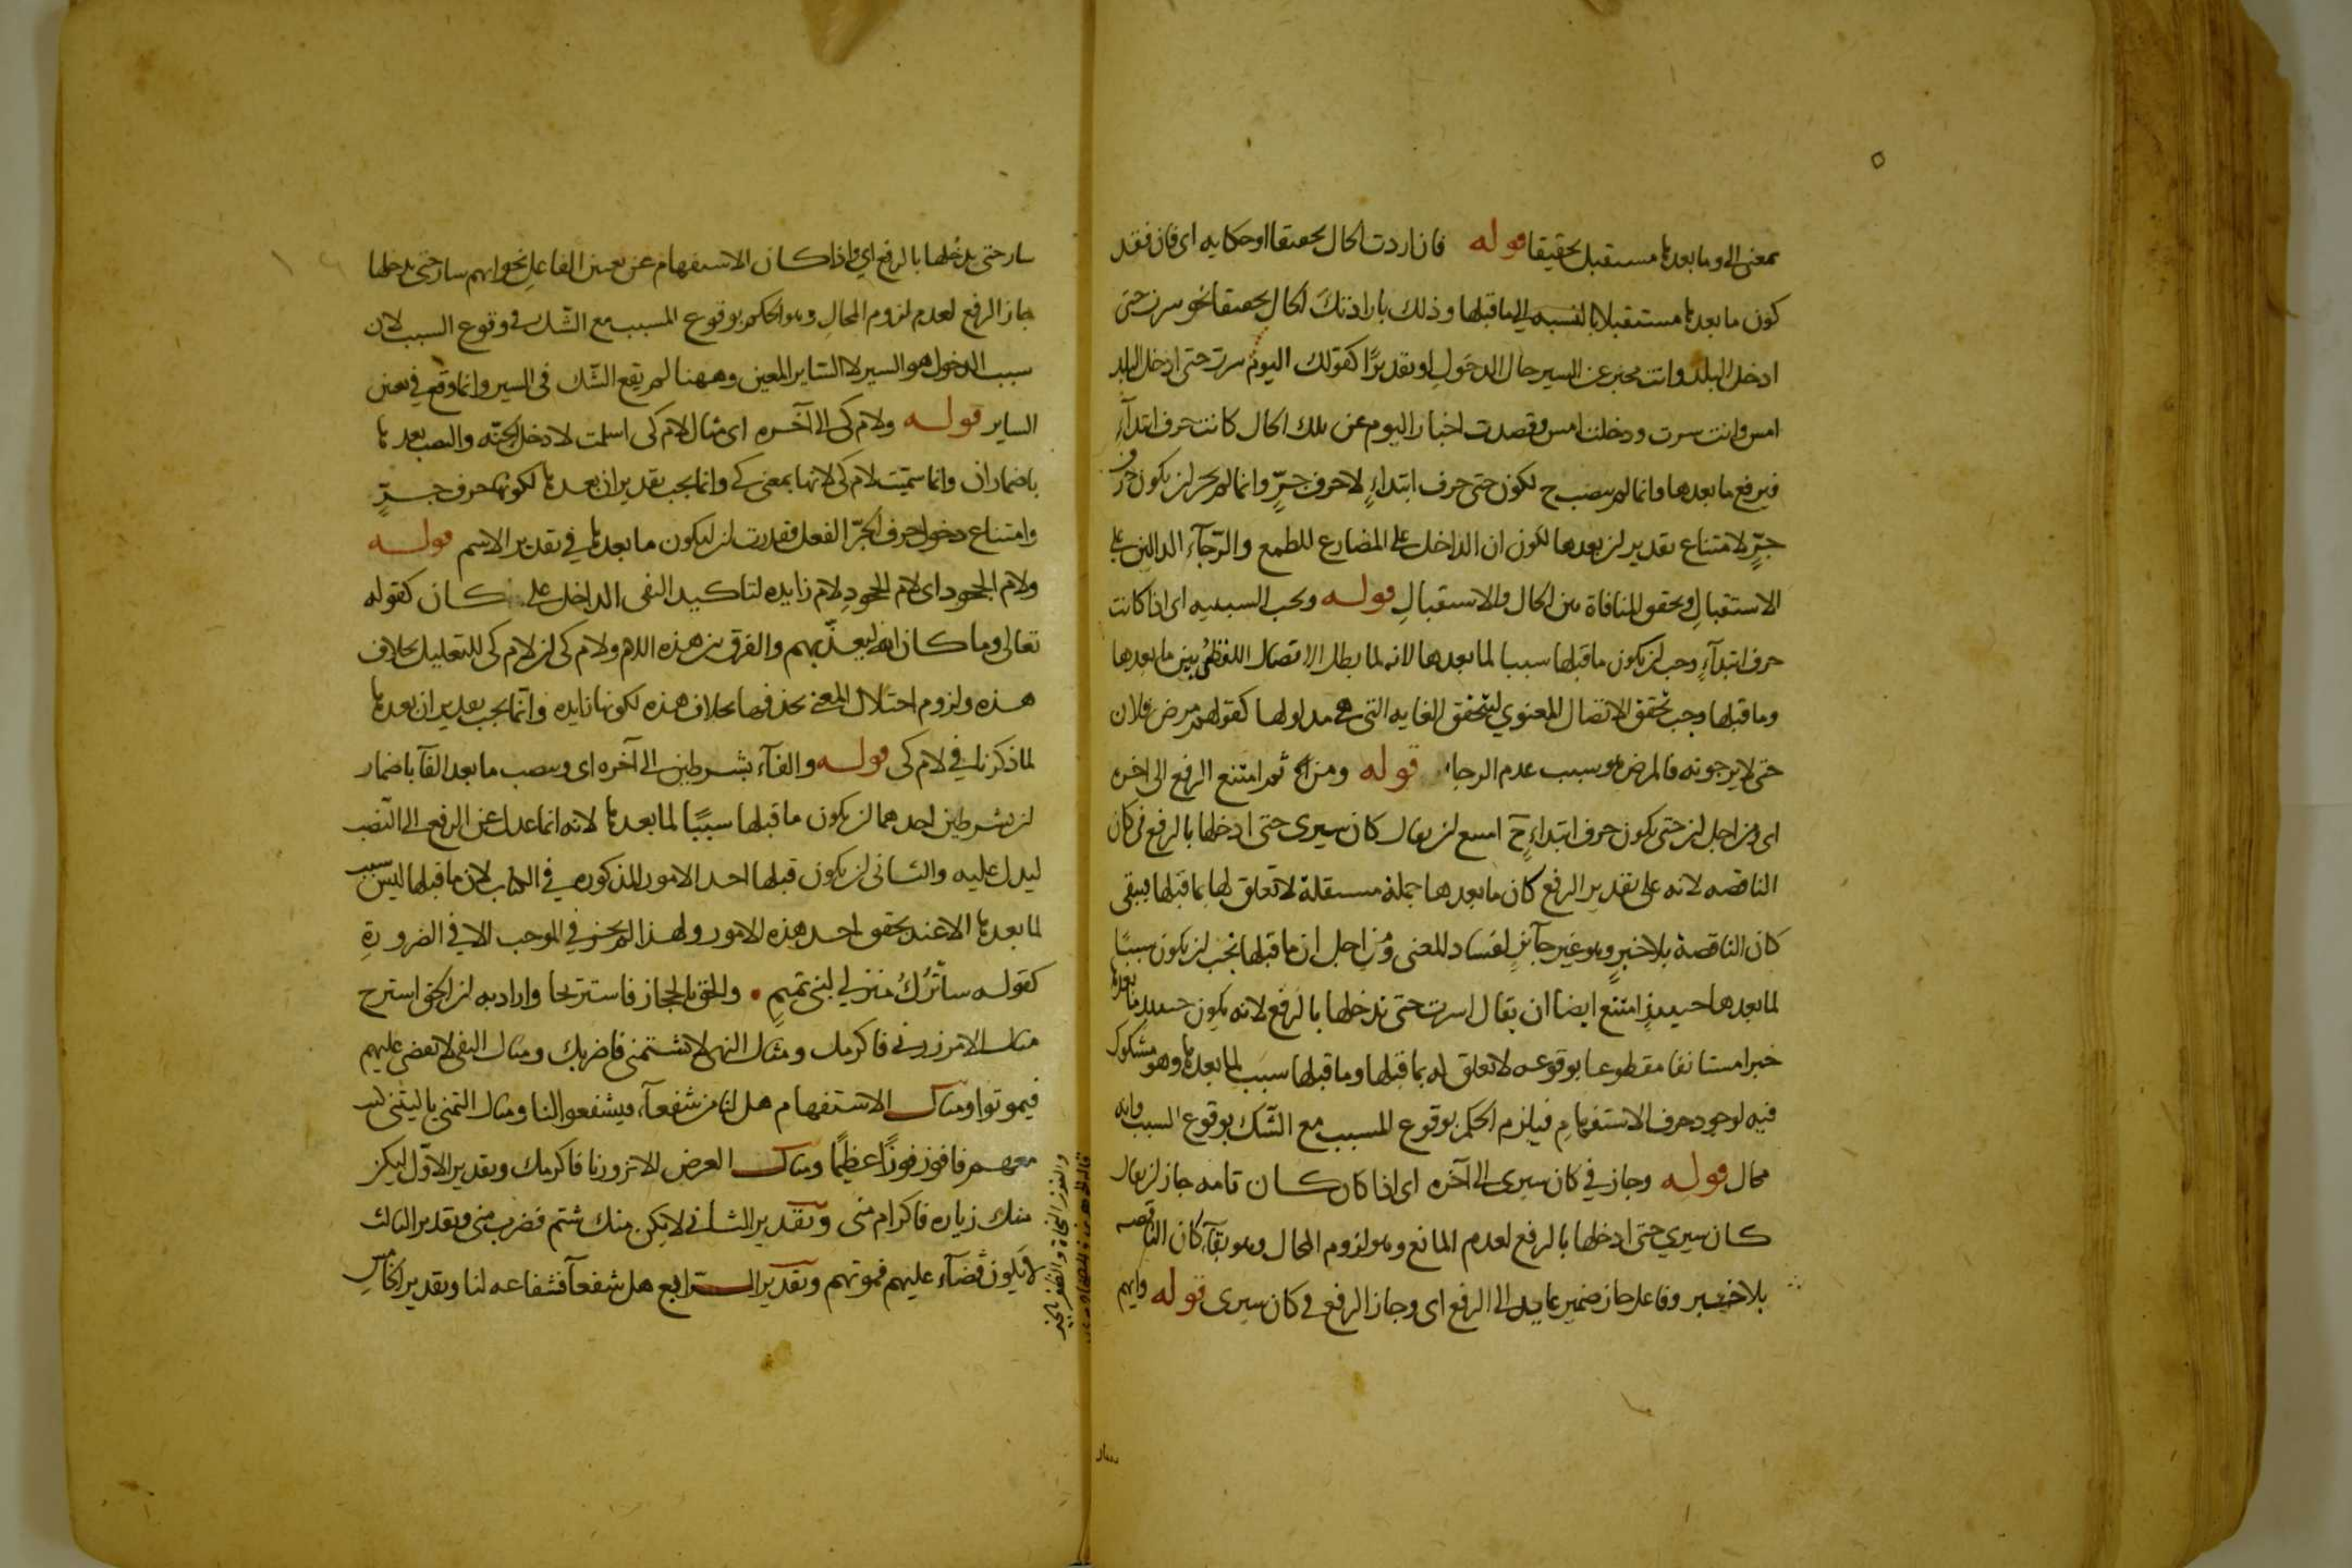 بمعنى الى وما بعدها مستقبل تحقيقا قوله فان اردت الحال تحقيقا او حكايه اى فان فقد
كون ما بعدها مستقبلا بالنسبه الى ما قبلها وذلك بارادتك الحال تحقيقا نحو سرت حتى
ادخل البلد وانت مخبر عن السير حال الدخول او تقديرًا كقولك اليوم سرت حتى ادخل البلد
امس وانت سرت ودخلت امس وقصدت اخبار اليوم عن تلك الحال كانت حرف ابتدآءٍ
فيرفع ما بعدها وانما لم ينصب ح لكون حتى حرف ابتداءٍ لا حرف جرٍّ وانما لم يجز ان يكون حرف
جرٍّ لامتناع تقدير ان بعدها لكون ان الداخل على المضارع للطمع والرّجآء الدالين على
الاستقبالِ وتحقق المنافاة بين الحال والاستقبالِ قوله وتجب السببيه اى اذا كانت
حرف ابتدآءٍ وجب ان يكون ما قبلها سببا لما بعدها لانه لما بطل الاتصال اللفظىُ بين ما بعدها
وما قبلها وجب تحقق الاتصال المعنوي ليتحقق الغايه التى هى مدلولها كقولهم مرض فلان
حتى لا يرجونه فالمرض هو سبب عدم الرجاء قوله ومن ثم امتنع الرفع الى اخره
اى ومن اجل ان حتى يكون حرف ابتداءٍ ح امتنع ان يقال كان سيرى حتى ادخلها بالرفع فى كان
الناقصه لانه على تقدير الرفع كان ما بعدها جملة مستقلة لا تعلق لها بما قبلها فيبقى
كان الناقصة بلا خبرٍ وهو غير جآئزٍ لفساد المعنى ومن اجل ان ما قبلها يجب ان يكون سببًا
لما بعدها حينيذٍ امتنع ايضا ان يقال اسرت حتى تدخلها بالرفع لانه يكون حينيذ ما بعدها
خبرا مستانفا مقطوعا بوقوعه لا تعلق له بما قبلها وما قبلها سبب لما بعدها وهو مشكوك
فيه لوجود حرف الاستفهامِ فيلزم الحكم بوقوع المسبب مع الشّك بوقوع السبب وانه
محال قوله وجاز في كان سيرى الى آخره اى اذا كان كان تامه جاز ان يقال
كان سيري حتى ادخلها بالرفع لعدم المانع وهو لزوم المحال وهو بقآء كان الناقصه
بلا خبر وفاعل جاز ضمير عايد الى الرفع اى وجاز الرفع فى كان سيرى قوله وايهم
سار حتى يدخُلها بالرفع اي واذا كان الاستفهام عن تعيين الفاعلِ نحو ايهم سار حتى يدخلها
جاز الرفع لعدم لزوم المحالِ وهو الحكم بوقوع المسبب مع الشّك فى وقوع السبب لان
سبب الدخول هو السير لا السّاير المعين وههنا لم يقع الشّك فى السير وانما وقع في تعين
الساير قوله ولام كى الى آخره اى مثال لام كى اسلمت لادخل الجنّه والنصب بعدها
باضمار ان وانما سمّيت لام كى لانها بمعنى كى وانما يجب تقدير ان بعدها لكونها حرف جرٍّ
وامتناع دخول حرف الجرّ الفعل فقدرت ان ليكون ما بعدها في تقدير الاسم قوله
ولام الجحود اى لام الجحودِ لام زايده لتاكيد النفى الداخل على كان كقوله
تعالى وما كان الله ليعذّبهم والفرق بين هذه اللام ولام كى ان لام كى للتعليل بخلاف
هذه ولزوم اختلال المعنى بحذفها بخلاف هذه لكونها زايده وانّما يجب تقدير ان بعدها
لما ذكرنا في لام كى قوله والفآء بشرطين الى آخره اى وينصب ما بعد الفآ باضمار
ان بشرطين احدهما ان يكون ما قبلها سببًا لما بعدها لانه انما عدل عن الرفع الى النّصب
ليدل عليه والثانى ان يكون قبلها احد الامور المذكوره في الكتاب لان ما قبلها ليس سبب
لما بعدها الا عند تحقق احد هذه الامور ولهذا لم يجز في الموجب الا في الضرورةِ
كقوله ساَترُكُ منزلي لبني تميمٍ • والحق بالحجاز فاستريحا واراد به ان الحق استرح
مثال الامر زرنى فاكرمك ومثال النهى لا تشتمنى فاضربك ومثال النفى لا يقضى عليهم
فيموتوا ومثال الاستفهام هل لنا من شفعآء فيشفعوا لنا ومثال التمنى يا ليتنى كنت
معهم فافوز فوزًا عظيمًا ومثال العرض الا تزورنا فاكرمك وتقدير الاوّل ليكن
منك زياره فاكرام منى وتقدير الثاني لا يكن منك شتم فضرب منى وتقدير الثالث
لا يكون قضآء عليهم فموتهم وتقدير الرابع هل شفعآ فشفاعه لنا وتقدير الخامس